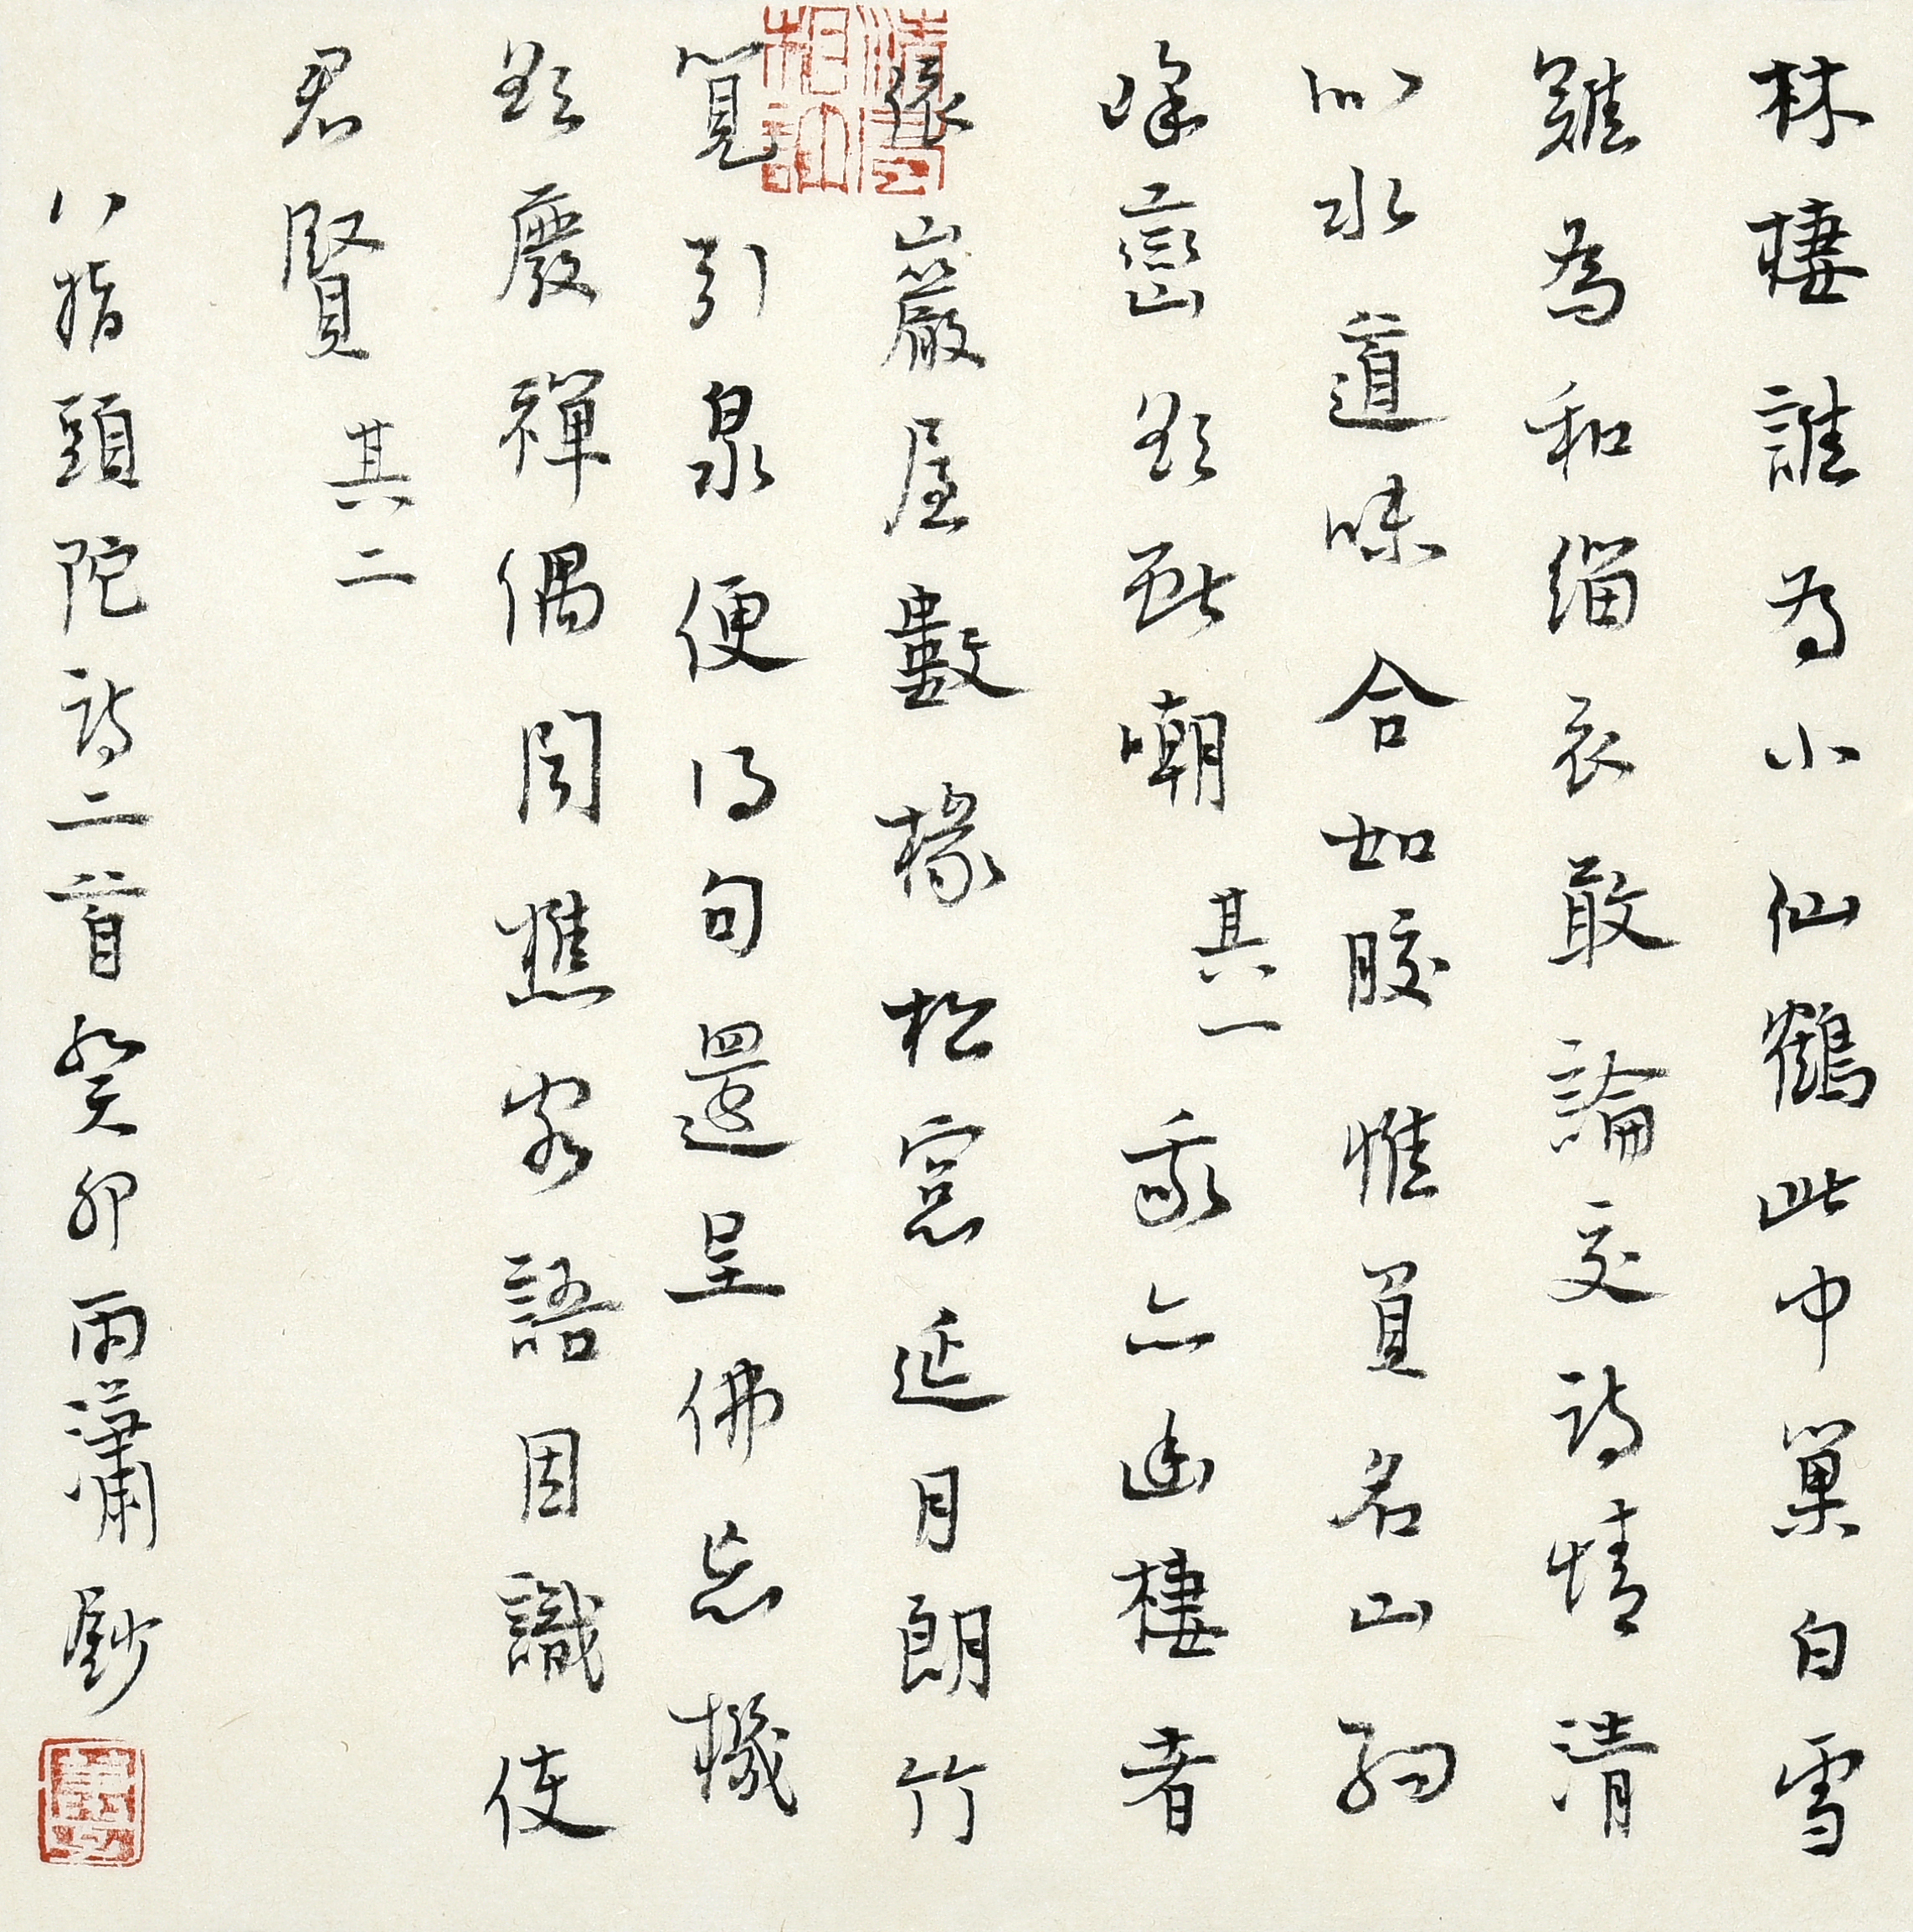 林棲誰為小仙鶴此中巢白雪
難為和緇衣敢論交詩情清
似水道味合如膠惟買名山約
峰巒欲嘲 其一 我亦幽棲者
依巖屋數椽松窗延月朗竹
筧引泉便得句還呈佛忘機
欲廢禪偶聞樵客語因識使
君賢 其二
八指頭陀詩二首癸卯雨瀟鈔